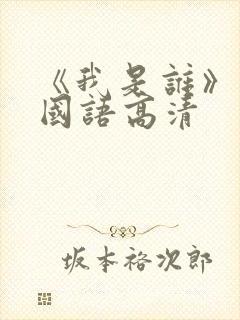 《我是誰》
國語高清
坂本裕次郎